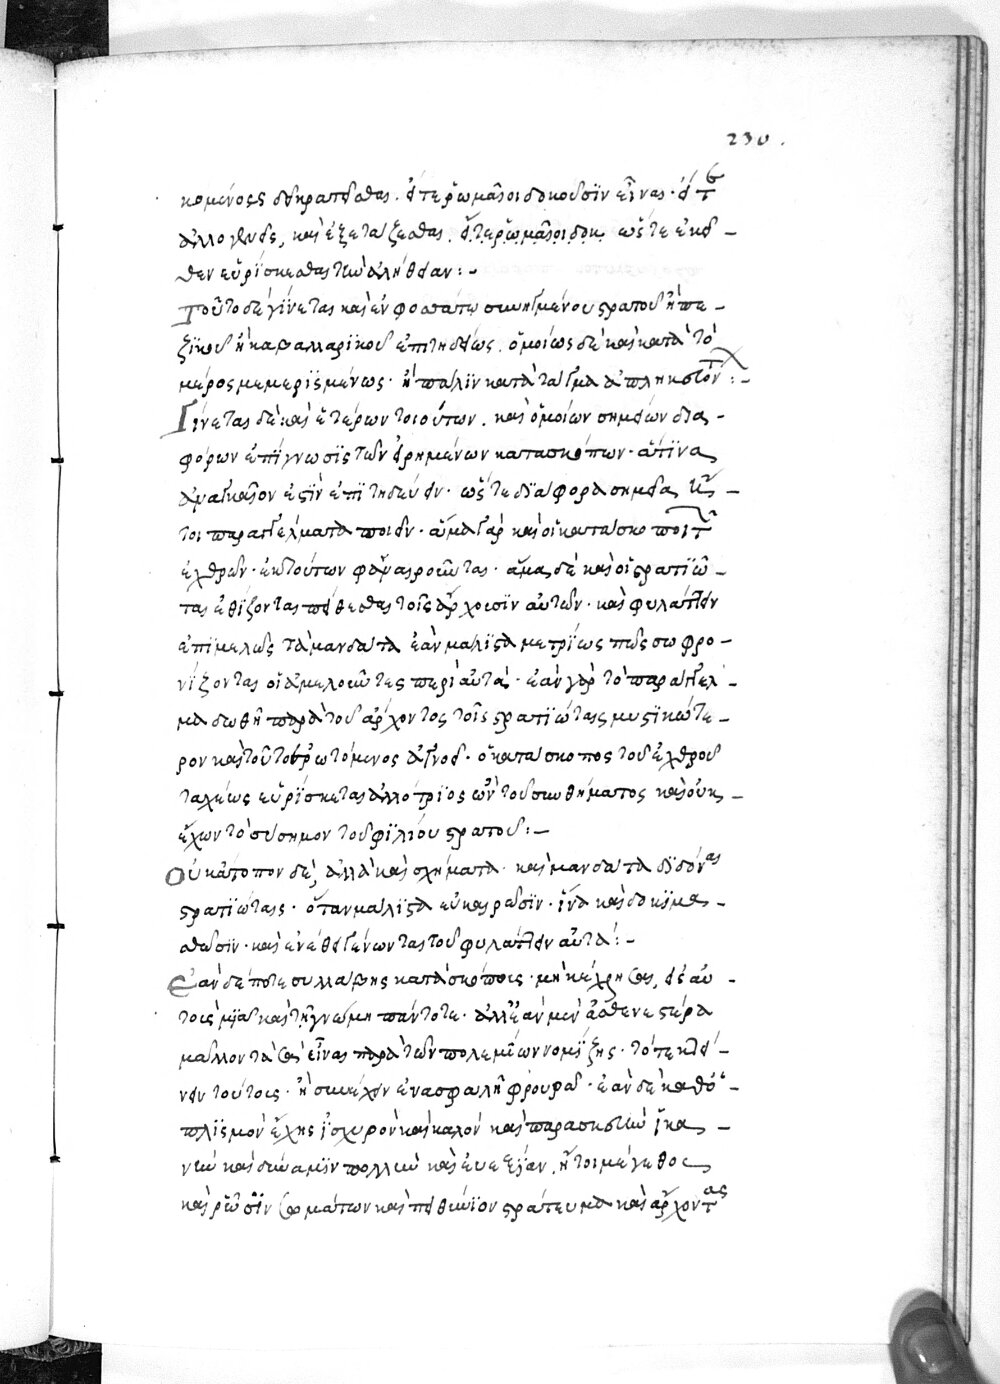 230.
κομένους διηγρατεῖσθαι. εἴτε ῥωμαῖοι δοκοῦσιν εἶναι. εἴτε
ἀλλογενεῖς, καὶ ἐξετάζεσθαι. εἴτε ῥωμαῖοι δοκ ὥστε ἐκεῖ –
θεν εὑρίσκεσθαι τὴν ἀλήθειαν : –
Τοῦτο δὲ γίνεται καὶ ἐν φοσσάτω συνηγμένου στρατοῦ ἢ πε –
ζικοῦ ἢ καβαλλαρικοῦ ἐπιτηδείως. ὁμοίως δὲ καὶ κατὰ τὸ
μέρος μεμερισμένως. ἢ πάλιν κατὰ τάγμα ἀπληκεῦον : –
Γίνεται δὲ καὶ ἑτέρων τοιούτων. καὶ ὁμοίων σημείων δια –
φόρων ἐπίγνωσις τῶν εἰρημένων κατασκόπων. ἅτινα
ἀναγκαῖόν ἐστιν ἐπιτηδεύειν. ὥστε διάφορα σημεῖα ἤ –
τοι παραγγέλματα ποιεῖν. ἅμα γὰρ καὶ οἱ κατάσκοποι τῶν
ἐχθρῶν. ἐκ τούτων φανεροῦνται. ἅμα δὲ καὶ οἱ στρατιῶ –
ται ἐθίζονται πείθεσθαι τοῖς ἄρχουσιν αὐτῶν. καὶ φυλάττειν
ἐπιμελῶς τὰ μανδάτα ἐὰν μάλιστα μετρίως πως σωφρο –
νίζονται οἱ ἀμελοῦντες περὶ αὐτά. ἐὰν γὰρ τὸ παράγγελ –
μα δωθῆ παρὰ τοῦ ἄρχοντος τοῖς στρατιώταις μυστικώτε –
ρον καὶ τοῦτο ἐρωτόμενος ἀγνοεῖ. ὁ κατάσκοπος τοῦ ἐχθροῦ
ταχέως εὑρίσκεται ἀλλότριος ὢν τοῦ συνθήματος καὶ οὐκ –
ἔχων τὸ σύσημον τοῦ φιλίου στρατοῦ : –
Οὐκ ἄτοπον δὲ, ἀλλὰ καὶ σχήματα. καὶ μανδάτα διδόναι
στρατιώταις. ὅταν μάλιστα εὐκαιροῦσιν. ἵνα καὶ δοκιμα –
σθῶσιν. καὶ ἐν ἔθει γένωνται τοῦ φυλάττειν αὐτά : –
Ἐὰν δέ ποτε συλλάβης κατασκόπους. μὴ κέχρησαι, εἰς αὐ –
τοὺς μιᾶ καὶ τῆ γνώμη πάντοτε. ἀλλ' ἐὰν μὲν ἀσθενέστερα
μᾶλλον τὰ σὰ εἶναι παρὰ τῶν πολεμίων νομίζης. τότε κτεί –
νειν τούτους. ἢ συνέχειν ἐν ἀσφαλῆ φρουρᾶ. ἐὰν δὲ καθό –
πλισμον ἔχης ἰσχυρὸν καὶ καλόν καὶ παρασκευὴν ἱκα –
νὴν καὶ δύναμιν πολλὴν καὶ εὐεξίαν. ἤτοι μέγεθος
καὶ ῥῶσιν σωμάτων καὶ πειθήνιον στράτευμα καὶ ἄρχοντας